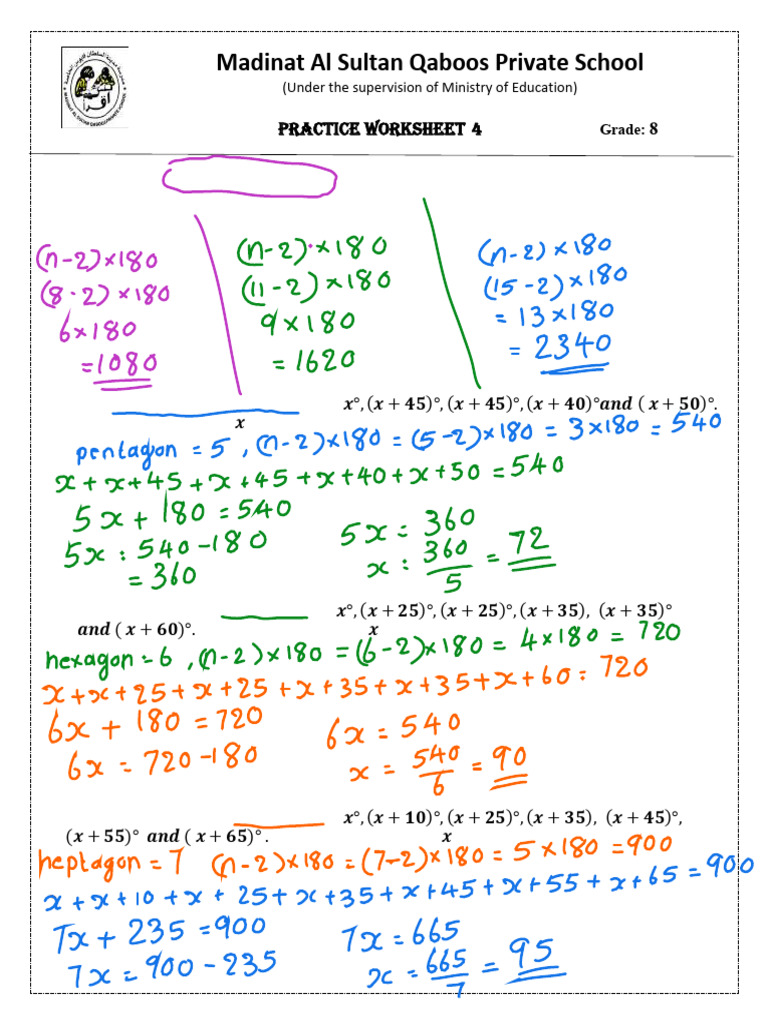 Madinat Al Sultan Qaboos Private School
(Under the supervision of Ministry of Education)
PRACTICE WORKSHEET 4 Grade: 8
(n-2)×180
(8-2)×180
6×180
=1080
(n-2)×180
(11-2)×180
9×180
=1620
(n-2)×180
(15-2)×180
=13×180
=2340
x°, (x + 45)°, (x + 45)°, (x + 40)°and ( x + 50)°.
x
pentagon = 5, (n-2)×180 = (5-2)×180 = 3×180 = 540
x + x+45 + x+45 + x+40 + x+50 = 540
5x + 180 = 540
5x = 540 - 180
= 360
5x = 360
x = 360/5 = 72
x°, (x + 25)°, (x + 25)°, (x + 35), (x + 35)°
and ( x + 60)°. x
hexagon = 6, (n-2)×180 = (6-2)×180 = 4×180 = 720
x + x+25 + x+25 + x+35 + x+35 + x+60 = 720
6x + 180 = 720
6x = 720 - 180
6x = 540
x = 540/6 = 90
x°, (x + 10)°, (x + 25)°, (x + 35), (x + 45)°,
(x + 55)° and ( x + 65)° . x
heptagon = 7 (n-2)×180 = (7-2)×180 = 5×180 = 900
x + x+10 + x + 25 + x+35 + x+45 + x+55 + x+65 = 900
7x + 235 = 900
7x = 900 - 235
7x = 665
x = 665/7 = 95